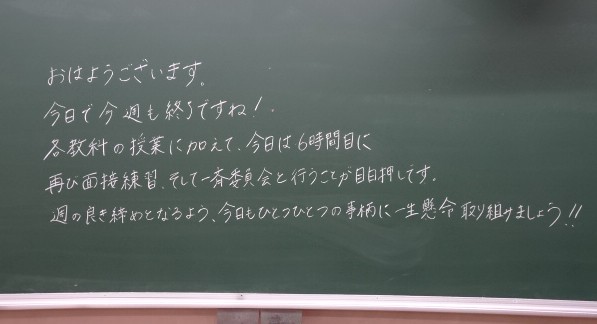 おはようございます。
今日で今週も終了ですね！
各教科の授業に加えて、今日は6時間目に
再び面接練習、そして一斉委員会と行うことが目白押しです。
週の良き締めとなるよう、今日もひとつひとつの事柄に一生懸命取り組みましょう!!